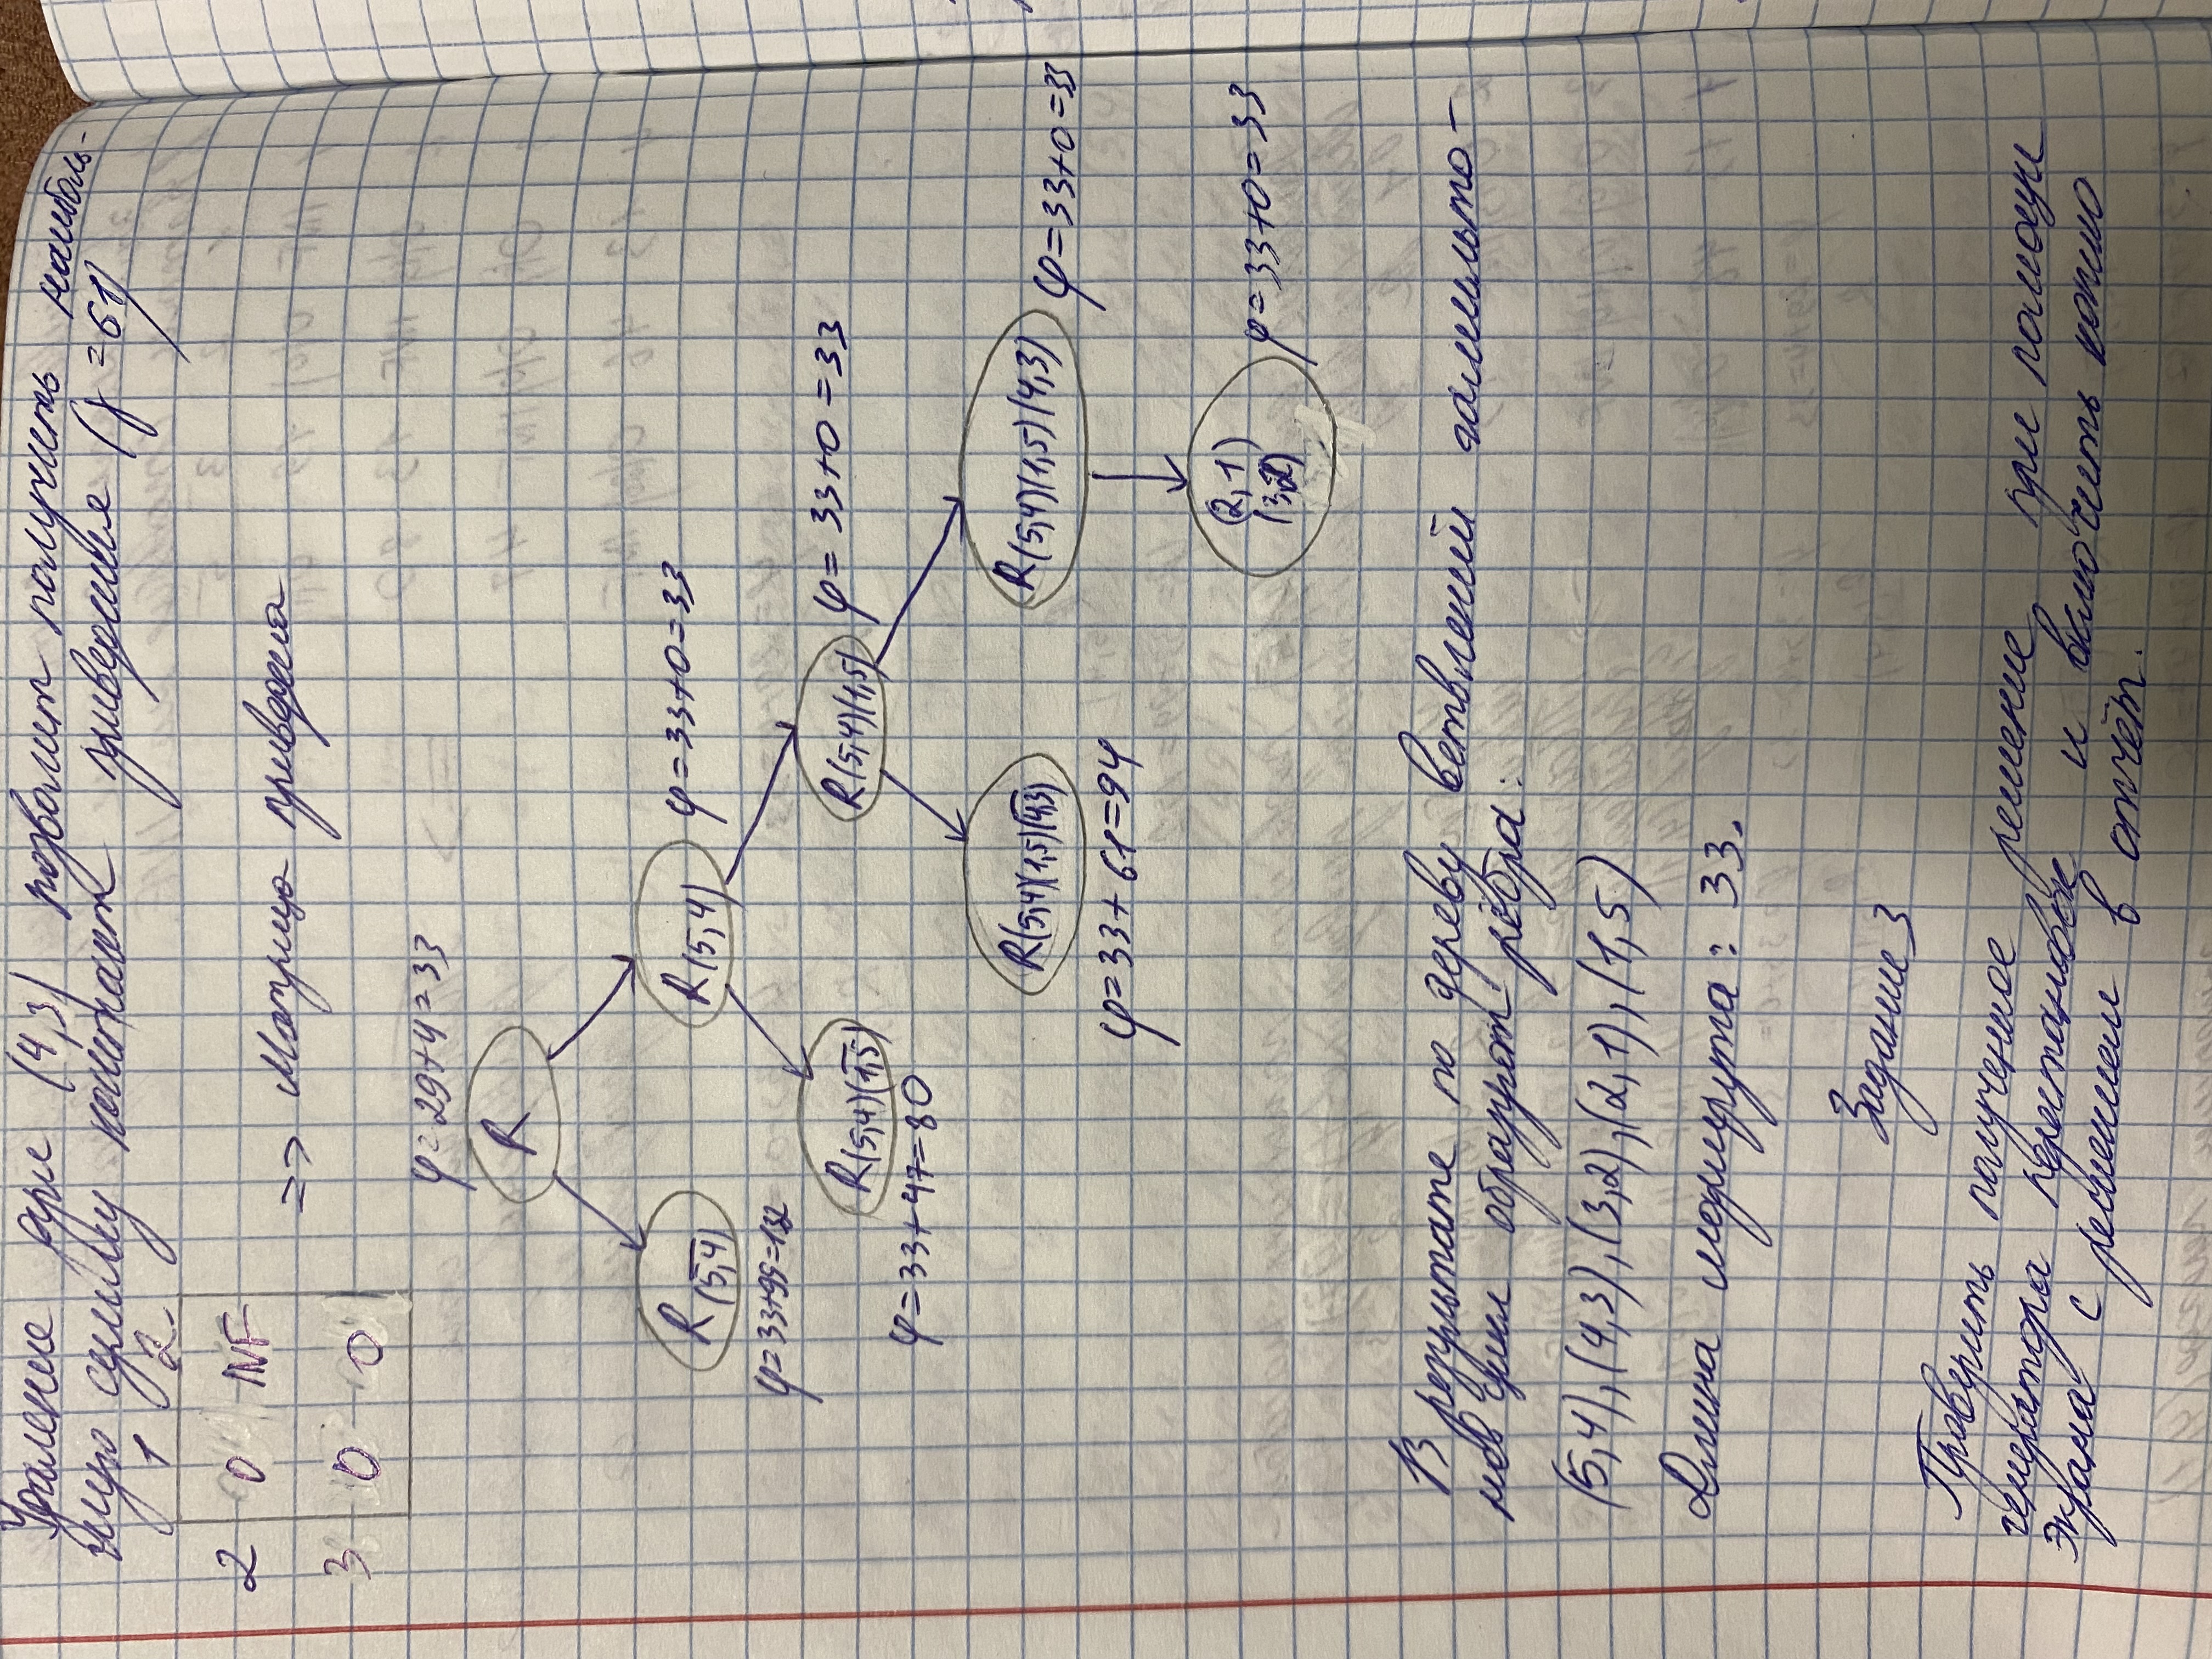 Удаление дуги (4,3) позволит получить наиболь-
шую сумму констант приведения (γ = 61)
1 2
2 0 INF
3 0 0
=> Матрица приведена
φ = 29+4 = 33
R
R(5,4)
R(5,4)
φ = 33+0 = 33
φ = 33+99 = 132
R(5,4)(1,5)
R(5,4)(1,5)
φ = 33+0 = 33
φ = 33+47 = 80
R(5,4)(1,5)(4,3)
R(5,4)(1,5)(4,3)
φ = 33+0 = 33
φ = 33+61 = 94
(2,1)
(3,2)
φ = 33+0 = 33
В результате по дереву ветвлений гамильто-
нов цикл образуют рёбра:
(5,4), (4,3), (3,2), (2,1), (1,5)
Длина маршрута: 33.
Задание 3
Проверить полученное решение при помощи
генератора перестановок и включить копию
экрана с решением в отчёт.